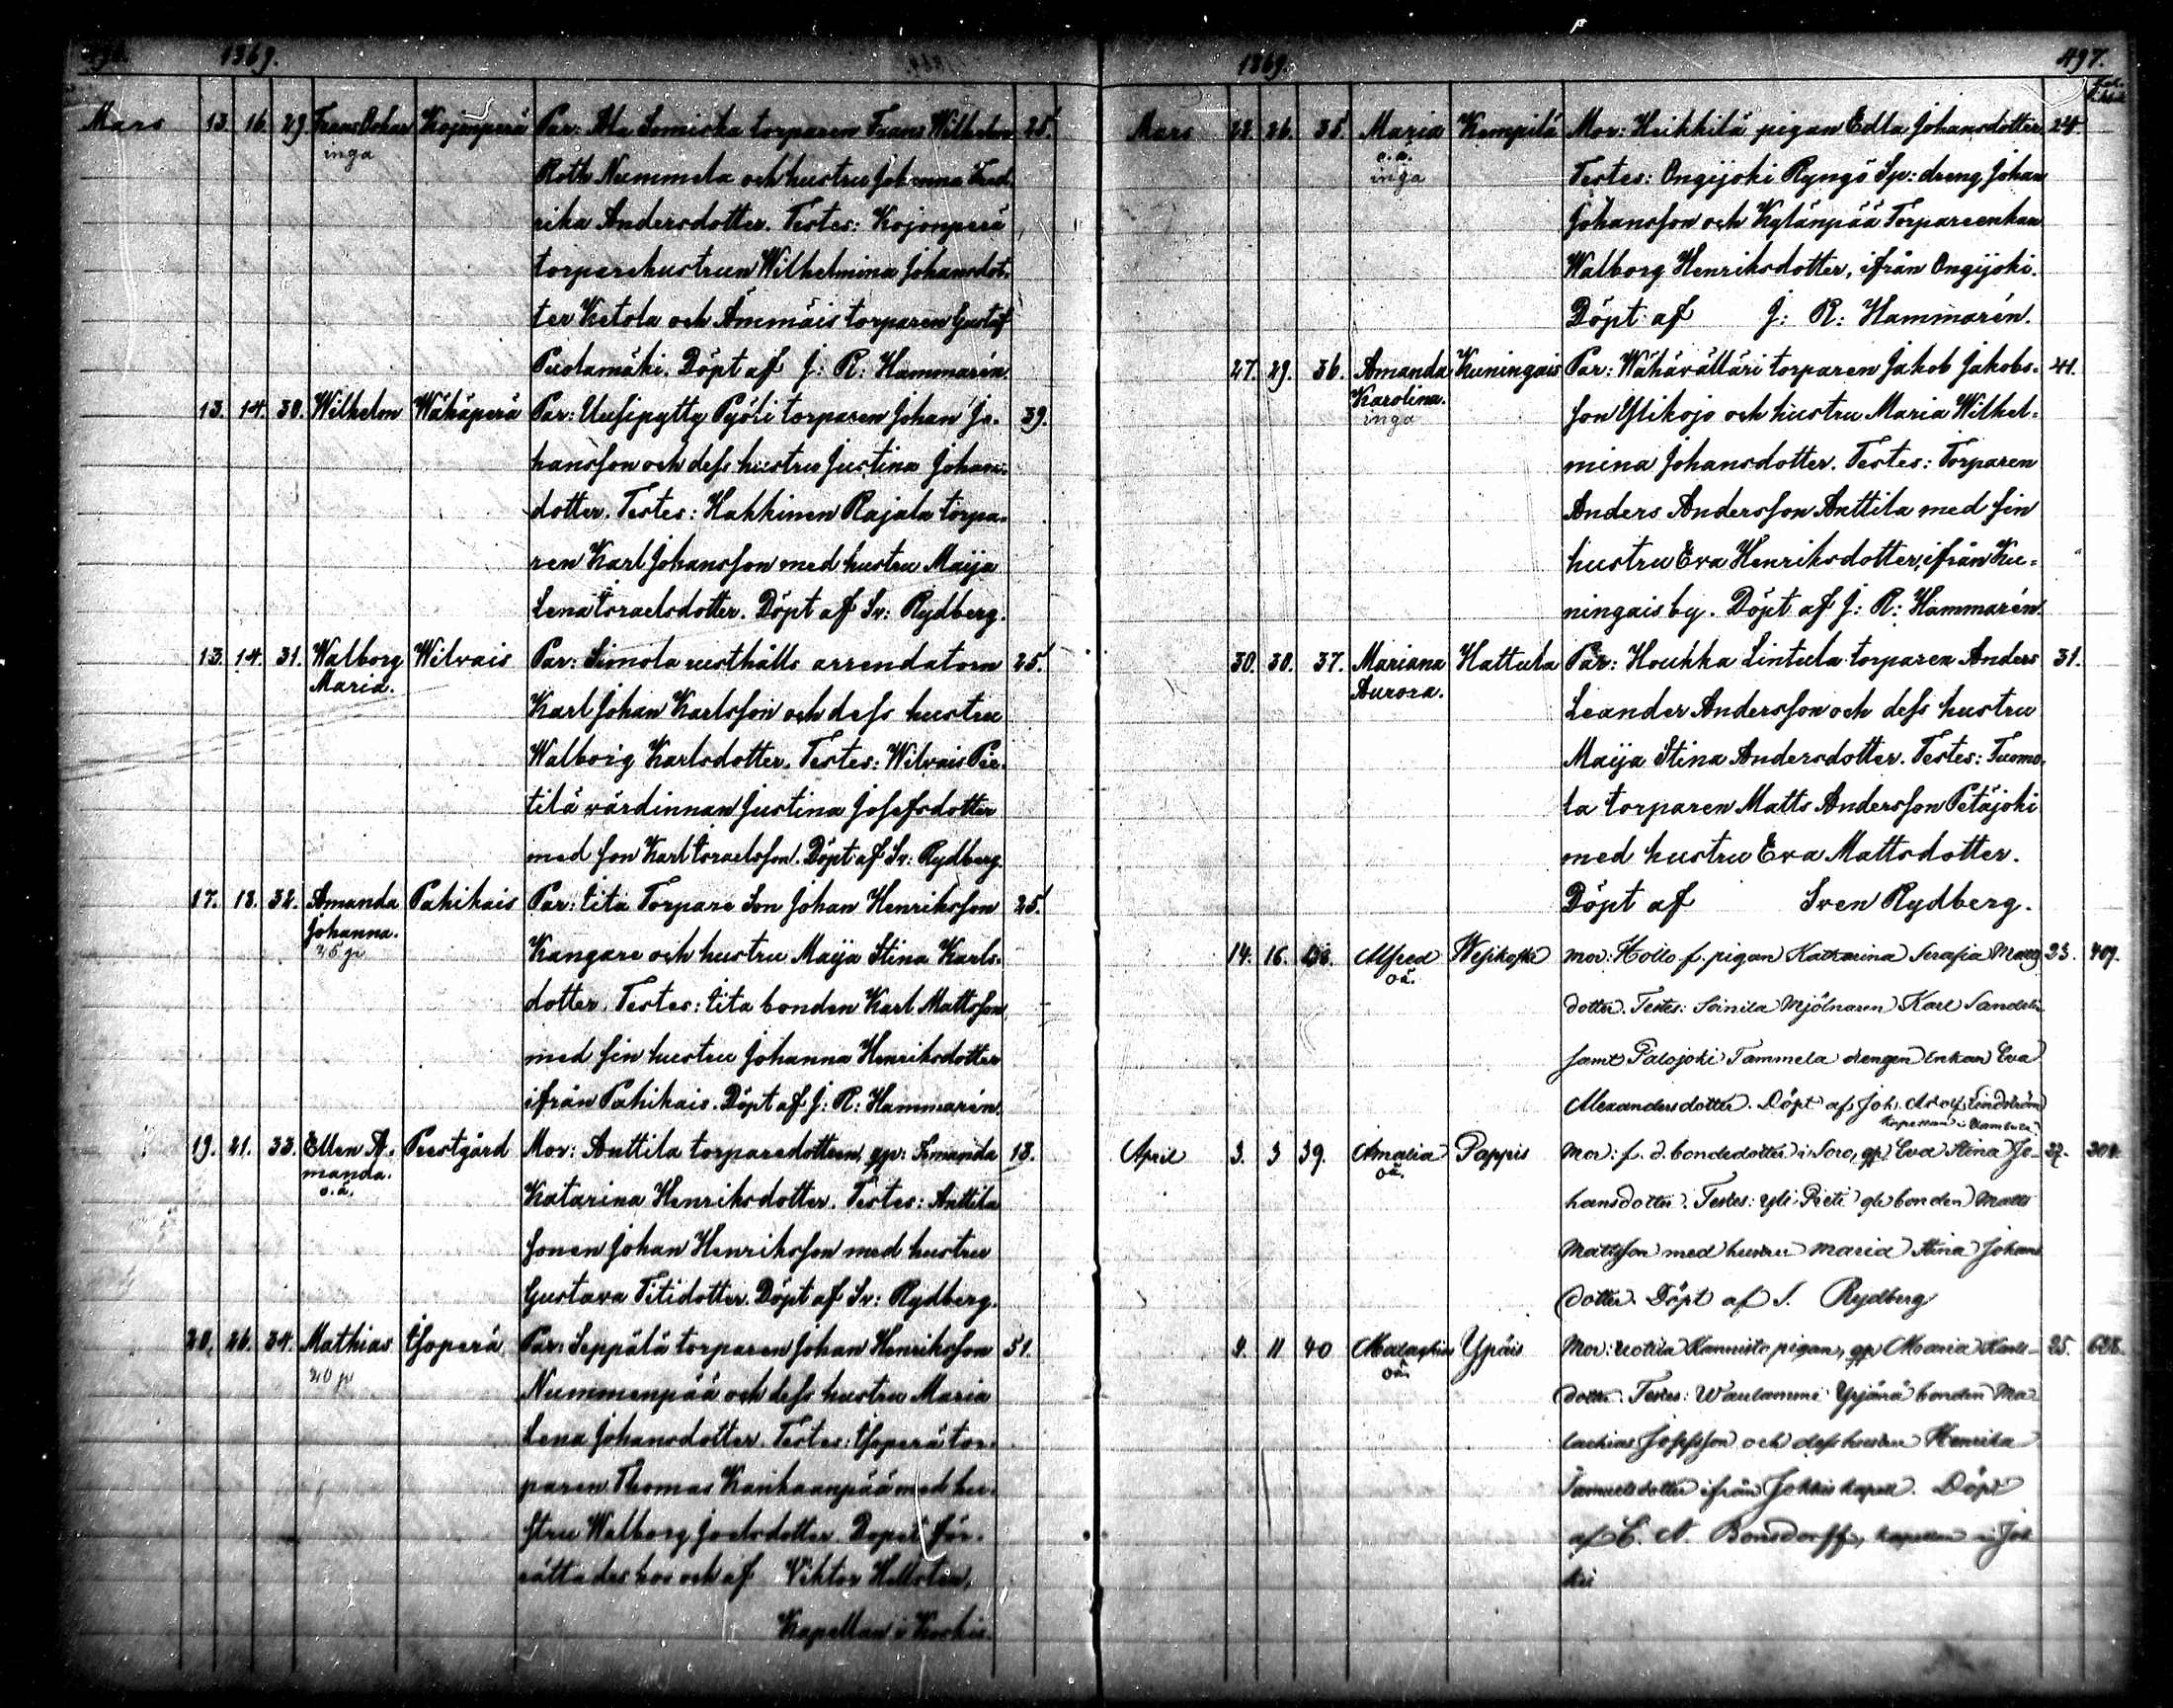 496. 1869.
Mars 13. 16. 29. Frans Oskar Kojonperä Par: Ala Somiska torparen Frans Wilhelm 25.
inga Roth Nummela och hustru Johanna Fred.
rika Andersdotter. Testes: Kojonperä
torparehustrun Wilhelmina Johansdot.
ter Ketola och Ämmäis torparen Gustaf
Puolamäki. Döpt af J: R: Hammarén.
13. 14. 30. Wilhelm Wähäperä Par: Uusipytty Pyöli torparen Johan Jo. 39.
hansson och dess hustru Justina Johan.
dotter. Testes: Hakkinen Rajala torpa.
ren Karl Johansson med hustru Maija
Lena Israelsdotter. Döpt af Sv: Rydberg.
13. 14. 31. Walborg Wilvais Par: Simola rusthålls arrendatorn 25.
Maria. Karl Johan Karlsson och dess hustru
Walborg Karlsdotter. Testes: Wilvais Per.
tilä värdinnan Justina Josefsdotter
med son Karl Israelsson. Döpt af Sv: Rydberg.
17. 18. 32. Amanda Pahikais Par: Iita Torpare Son Johan Henriksson 25.
Johanna.
25 gr Kangare och hustru Maija Stina Karls.
dotter. Testes: Iita bonden Karl Mattsson
med sin hustru Johanna Henriksdotter
ifrån Pahikais. Döpt af J: R: Hammarén.
19. 21. 33. Ellen A. Prestgård Mor: Anttila torparedottren, gp: Amanda 18.
manda.
o.ä. Katarina Henriksdotter. Testes: Anttila
Sonen Johan Henriksson med hustru
Gustava Titidotter. Döpt af Sv: Rydberg.
20. 26. 34. Mathias Isoperä Par: Seppälä torparen Johan Henriksson 51.
Nummenpää och dess hustru Maria
Lena Johansdotter. Testes: Isoperä tor.
paren Thomas Kankaanpää med hu.
stru Walborg Joelsdotter. Dopet för.
rättades hos och af Viktor Hellsten,
Kapellan i Koskis.
1869. 497.
Mars 22. 26. 35. Maria Kempilä Mor: Heikkilä pigan Edla Johansdotter 24
o.ä.
inga Testes: Ongijoki Ryngö Sp: dreng Johan
Johansson och Kylänpää Torpareenkan
Walborg Henriksdotter, ifrån Ongijoki.
Döpt af J: R: Hammarén.
27. 29. 36. Amanda Kuningais Par: Wähävälläri torparen Jakob Jakobs- 41.
Karolina.
inga son Ylikojo och hustru Maria Wilhel-
mina Johansdotter. Testes: Torparen
Anders Andersson Anttila med sin
hustru Eva Henriksdotter, ifrån Ku-
ningais by. Döpt af J: R: Hammarén.
30. 30. 37. Mariana Hattula Par: Houkka Lintula torparen Anders 31.
Aurora. Leander Andersson och dess hustru
Maija Stina Andersdotter. Testes: Tuomo.
la torparen Matts Andersson Petäjoki
med hustru Eva Mattsdotter.
Döpt af Sven Rydberg.
14. 16. 38. Alfred Wesikoski Mor: Hollo f. pigan Katharina Serafia Matts 23. 409.
oä. dotter. Testes: Soinila Mjölnaren Karl Sandelin
samt Palojoki Tammela drengen enkan Eva
Alexandersdotter. Döpt af Joh. Adolf Lindström
April 3. 3 39. Amalia Pappis Mor: f. d. bondedotter i Soro, gp. Eva Stina Jo- 27. 300.
oä. hansdotter. Testes: Yli Pieti bonden Matts
Mattsson med hustru Maria Stina Johans
dotter. Döpt af S. Rydberg
9. 11 40 Malakias Ypäis Mor: Uotila Kannisto pigan, gp. Maria Karls- 25. 628.
oä. dotter. Testes: Waulammi Ypjänä bonden Ma
lachias Josefsson och dess hustru Henrika
Samuelsdotter ifrån Jokkis kapell. Döpt
af C. N. Bonsdorff, kapellan i Jok
kis